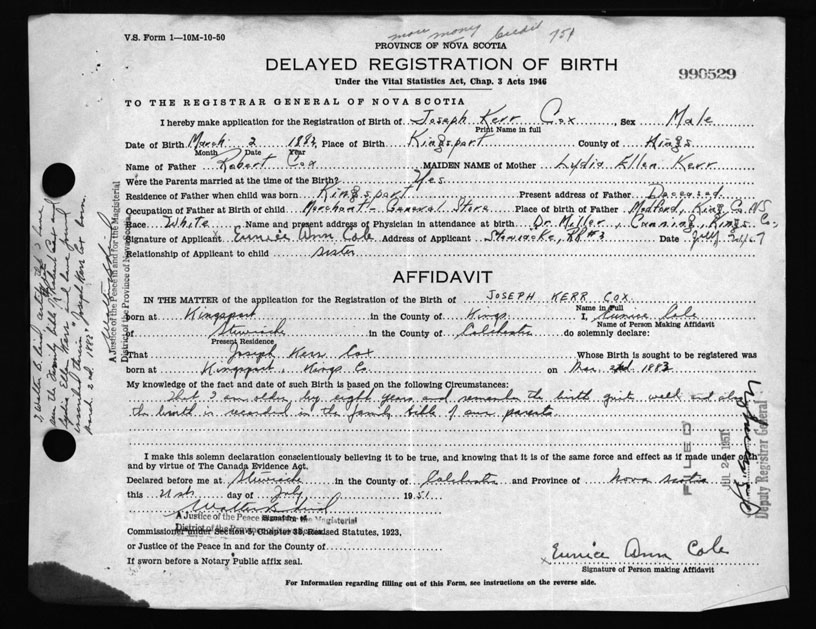 V.S. Form 1—10M-10-50
more money Credit 751
PROVINCE OF NOVA SCOTIA
DELAYED REGISTRATION OF BIRTH
Under the Vital Statistics Act, Chap. 3 Acts 1946
990529
TO THE REGISTRAR GENERAL OF NOVA SCOTIA
I hereby make application for the Registration of Birth of Joseph Kerr Cox, Sex Male
Print Name in full
Date of Birth March 2 1883, Place of Birth Kingsport County of Kings
Month Date Year
Name of Father Robert Cox MAIDEN NAME of Mother Lydia Ellen Kerr
Were the Parents married at the time of the Birth? Yes
Residence of Father when child was born Kingsport Present address of Father Deceased
Occupation of Father at Birth of child Merchant - General Store Place of Birth of Father Medford, King Co. NS
Race White Name and present address of Physician in attendance at birth Dr. Miller, Canning, Kings Co,
Signature of Applicant x Eunice Ann Cole Address of Applicant Stewiacke, RR #3 Date July
Relationship of Applicant to child sister
AFFIDAVIT
IN THE MATTER of the application for the Registration of the Birth of JOSEPH KERR COX
Name in Full
born at Kingsport in the County of Kings I, Eunice Cole
Name of Person Making Affidavit
of Stewiacke in the County of Colchester do solemnly declare:
Present Residence
That Joseph Kerr Cox Whose Birth is sought to be registered was
born at Kingsport, Kings Co. on Mar. 2nd 1883
My knowledge of the fact and date of such Birth is based on the following Circumstances:
That I am older by eight years and remember the birth quite well and also
the birth is recorded in the family bible of our parents
I make this solemn declaration conscientiously believing it to be true, and knowing that it is of the same force and effect as if made under oath
and by virtue of The Canada Evidence Act.
Declared before me at Stewiacke in the County of Colchester and Province of Nova Scotia
this 21st day of July 1951
Walter B.
A Justice of the Peace in and for the Magisterial
District of the Province of Nova Scotia
Commissioner under Section 5, Chapter 35, Revised Statutes, 1923,
or Justice of the Peace in and for the County of
If sworn before a Notary Public affix seal.
x Eunice Ann Cole
Signature of Person making Affidavit
For Information regarding filling out of this Form, see instructions on the reverse side.
I, Walter B. certify that I have
seen the Family bible of Robert Cox and
Lydia Ellen Kerr and have found
inscribed therein "Joseph Kerr Cox born
March 2nd 1883"
Walter B.
A Justice of the Peace in and for the Magisterial
District of the Province of Nova Scotia
FILED
JUL 1951
Deputy Registrar General